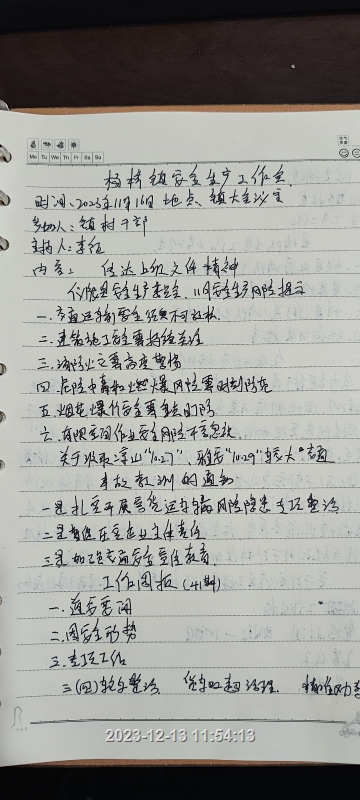 Mo Tu We Th Fr Sa Su
杨桥镇安全生产工作会
时间:2023年11月16日 地点:镇大会议室
参加人:镇村干部
主持人:李
内容: 传达上级文件精神
安全生产委员会,11月安全生产风险提示
一.交通运输安全 不可松
二.建筑施工安全要持续关注
三.消防火灾要高度警惕
四.危险中毒和燃爆风险需时刻防范
五.烟花爆竹安全要 严防
六.有限空间作业安全风险不容忽视
关于汲取凉山“10.27”、雅安“10.29”较大交通
事故教训的通知
一是扎实开展 运输风险隐患专项整治
二是 压实企业主体责任
三是加强交通安全宣传教育.
工作周报(41期)
一.
二.周安全形势
三.专项工作
三(四) 整治 治理.
2023-12-13 11:54:13